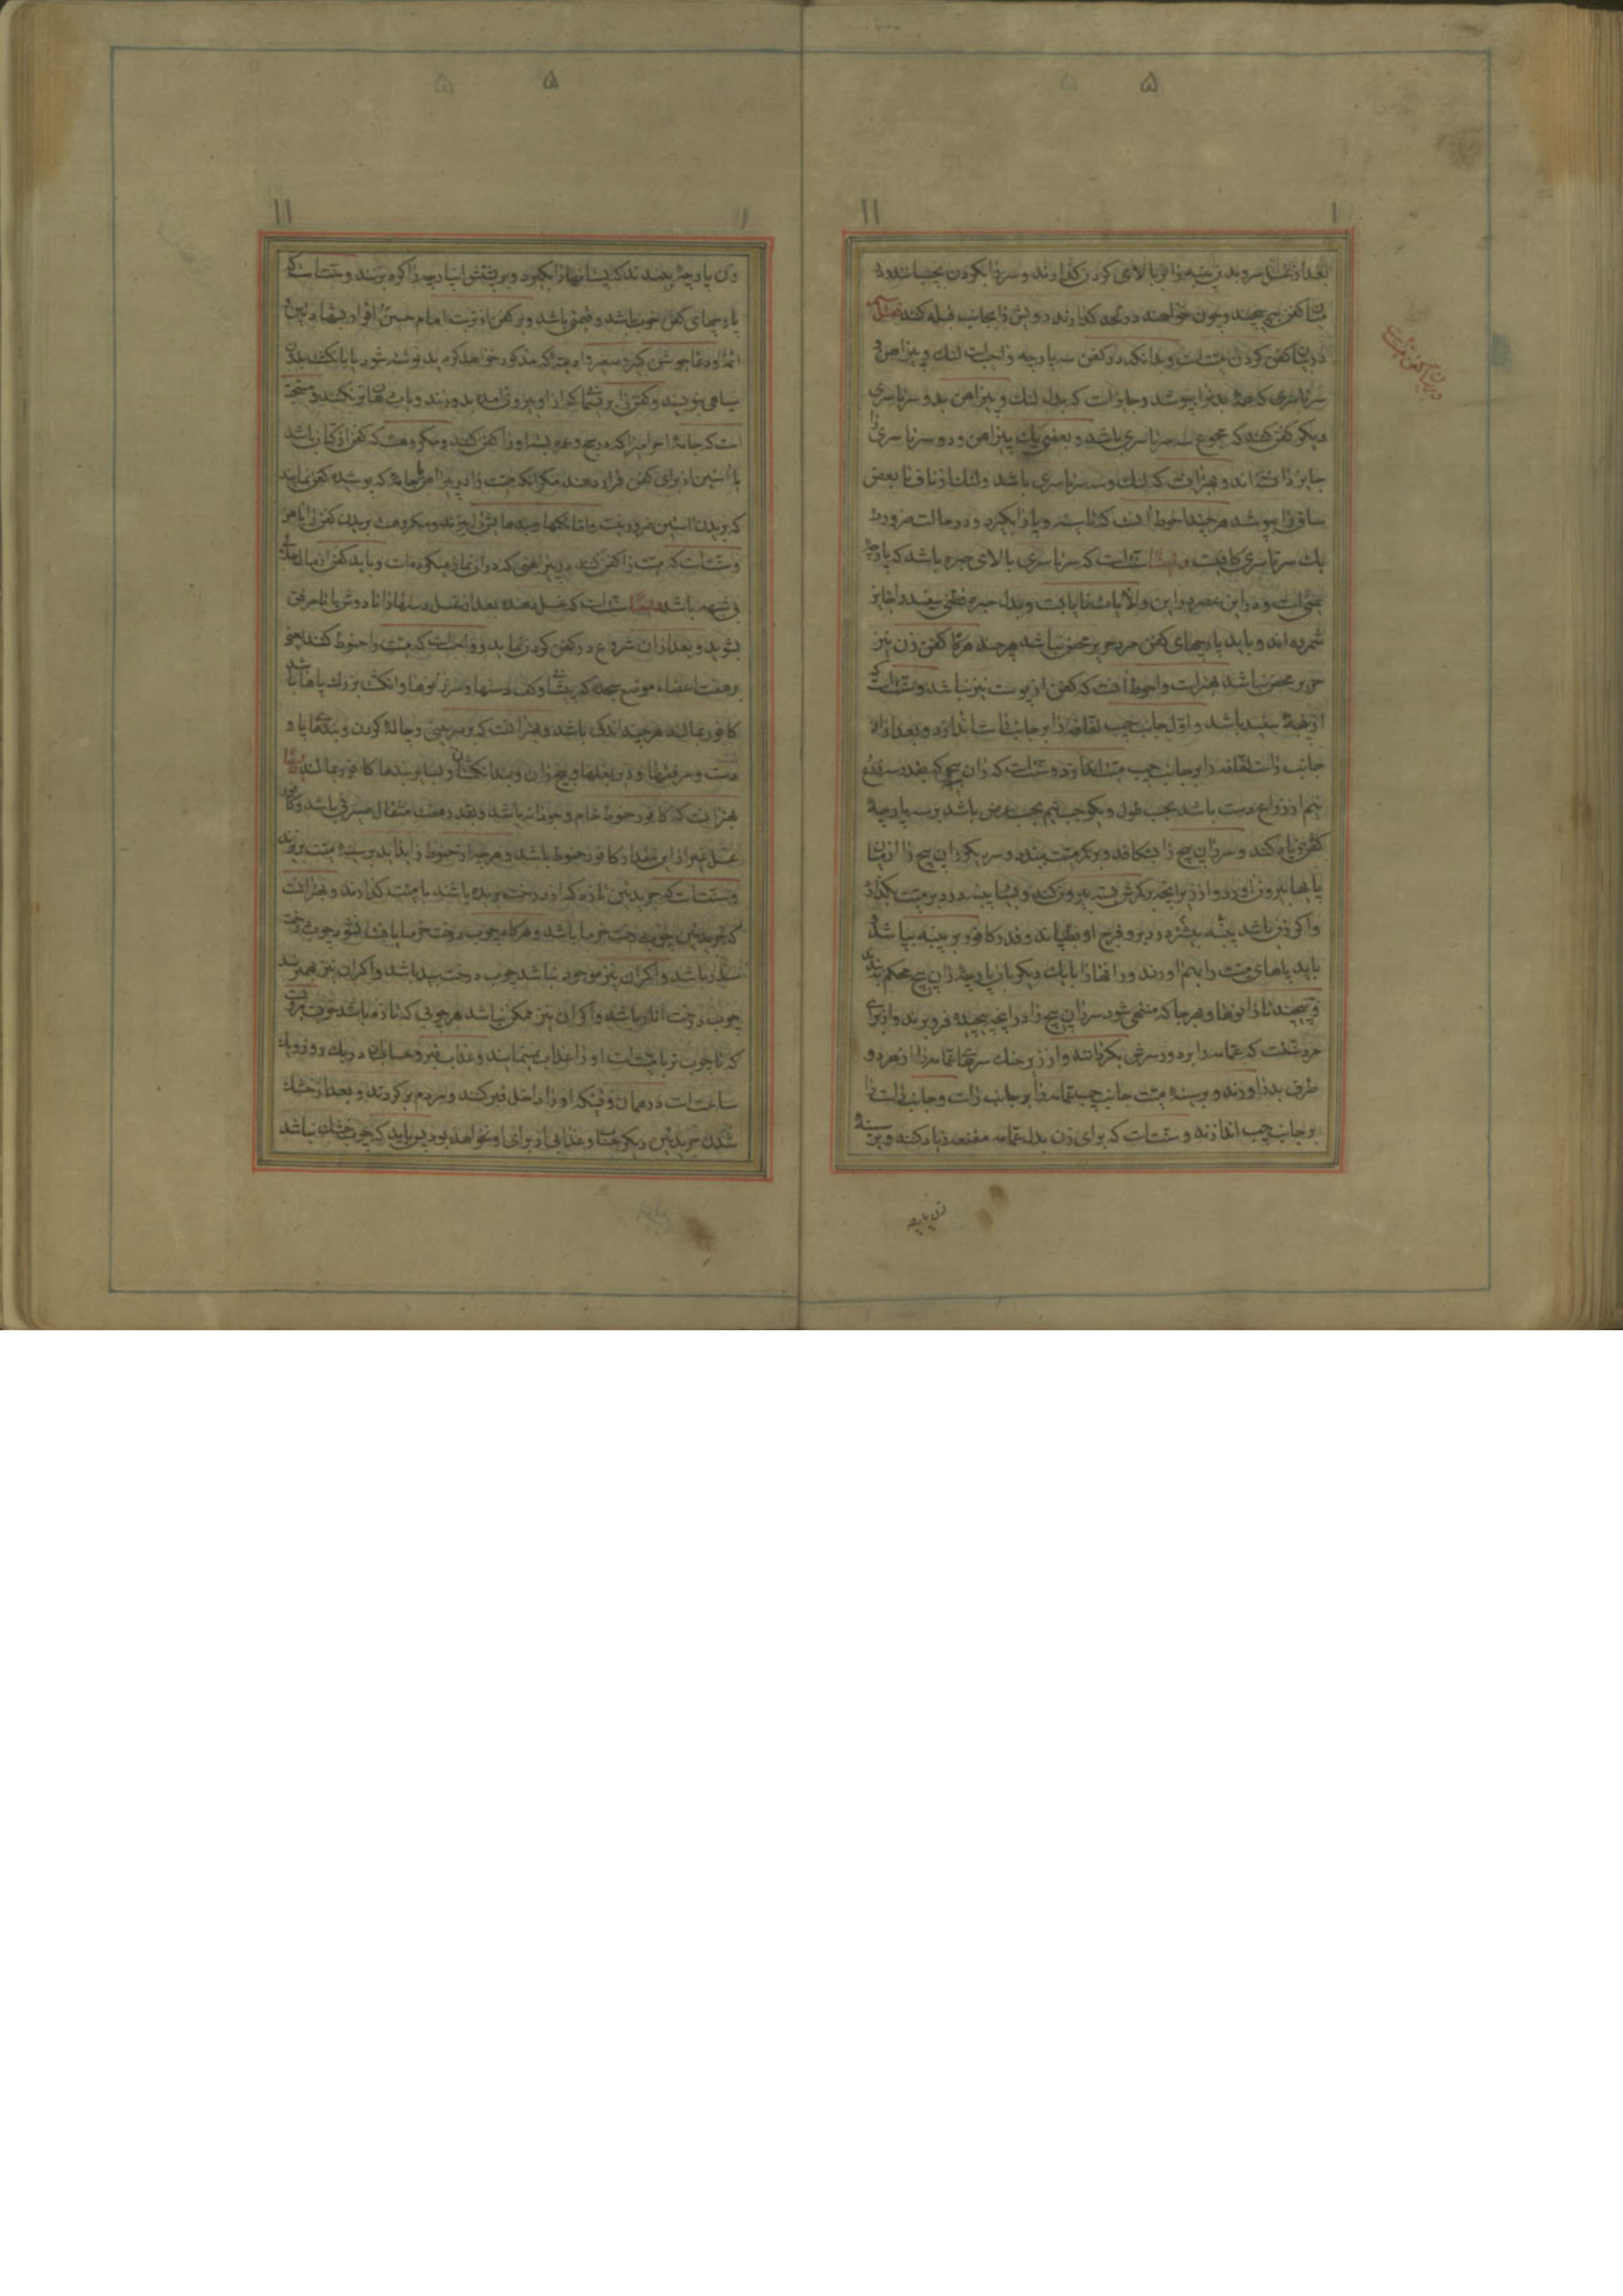 ۵
۱۱
بعد از غسل سر و بدن
میان کفن پیچند و چون خواهند در لحد گذارند رویش را بجانب قبله کنند فصل
در بیان کفن کردن میت است و بدانکه در کفن سه پارچه واجبست لنك و پیراهن و
سرتاسری که همه بدنرا بپوشد و جایز است که بدل لنك و پیراهن بدو سرتاسری
دیگر کفن کنند که مجموع سه سرتاسری باشد و بعضی یك پیراهن و دو سرتاسری را
جایز دانسته اند و بهتر آنست که لنك و سه سرتاسری باشد و لنك از ناف تا بعض
ساق را بپوشد هر چند احوط آنست که تا سینه و پا را بگیرد و در حالت ضرورت
یك سرتاسری کافیست و ایضا سنت است که سرتاسری بالای حبره باشد که پارچه
یمنی است و در این عصر و این ولایات نایابست و بدل حبره قطنی سفید را جایز
شمرده اند و باید پارچهای کفن مرد حریر محض نباشد هر چند هرگاه کفن زن نیز
حریر محض نباشد بهتر است و احوط آنست که کفن از پوست نیز نباشد و سنت است که
از پنبهٔ سفید باشد و اول جانب چپ لفافه را بر جانب راست اندازد و بعد از آن
جانب راست لفافه را بر جانب چپ میت اندازد و سنت است که ران پیچ که بقدر سه ذرع
نیم از ذراع دست باشد بحسب طول و یکوجب نیم بحسب عرض باشد بر سه پارچهٔ
کفن زیاد کنند و سر ران پیچ را بشکافد و بر کمر میت ببندد و سر دیگر ران پیچ را از میان
پاها بیرون آورد و از زیر آنچه بر کمرش بسته بیرون کند و پنبه در دبر میت بگذارد
و اگر زن باشد پنبه بیشتر در دبر و فرج او بطپاند و قدر کافور بر پنبه بپاشد و
باید پاهای میت را بهم آورند و رانها را با یك دیگر باز پارچهٔ ران پیچ محکم بندند
و پیچند تا زانوها و بهر جا که منتهی شود سر ران پیچ را در آنچه پیچیده فرو برند و از برای
مرد سنت است که عمامه را بر دور سرش بگردانند و از زیر حنك سرهای عمامه را از هر دو
طرف بدر آورند و بر سینهٔ میت جانب چپ عمامه را بر جانب راست و جانب راست را
بر جانب چپ اندازند و سنت است که برای زن بدل عمامه مقنعه زیاد کنند و بر سینهٔ
زن پارچه
در بیان کفن میت
۵
۱۱
زن پارچهٔ ببندند که پستانهارا بگیرد و بر پشتش این پارچه را گره بزنند و سنت است که
پارچهای کفن خوب باشد و قیمتی باشد و بر کفن از تربت امام حسین اقرار بشهادتین و
ائمه و دعا جوشن کبیر و صغیر را
سیاهی بنویسند و کفن را بریسمان که از او بیرون آمده بدوزند
است که جامهٔ احرامیرا که در حج و عمره
با آستین از برای کفن قرار دهند مگر آنکه میت را در پیراهن یا جامهٔ که پوشیده کفن نمایند
که بریدن آستین ضرور نیست و اما تکمها و بندهایش را ببرند و مکروهست بریدن کفن را بآهن
و سنت است که میت را کفن کنند در پیراهنی که در آن نماز میکرده است و باید کفن از مال حلال
بی شبهه باشد ایضا سنت است که غسل دهنده بعد از غسل دستها را تا دوش یا تا مرفق
بشوید و بعد از آن شروع در کفن کردن نماید و واجب است که میت را حنوط کنند یعنی
بر هفت اعضاء موضع سجده که پیشانی و کف دستها و سر زانوها و انگشت بزرك پاها باشد
کافور بمالند هر چند اندکی باشد و بهتر آنست که بر سر بینی و چالهٔ گردن و بندهای پا و
دست و مرفقها و زیر بغلها و بیخ ران و بند انگشتان و سایر بندها کافور بمالند و ایضا
بهتر آنست که کافور حنوط خام و جودانه باشد و بقدر هفت مثقال صیرفی باشد و کافور
غسل غیر از این مقدار کافور حنوط باشد و هر چه از حنوط زاید آید بر سینهٔ میت بریزند
و سنت است که جریدتین تازه که از درخت بریده باشند با میت گذارند و بهتر آنست
که جریدتین چوب درخت خرما باشد و هرگاه چوب درخت خرما یافت نشود چوب درخت
سدر باشد و اگر آن نیز موجود نباشد چوب درخت بید باشد و اگر آن نیز بهم نرسد
چوب درخت انار باشد و اگر آن نیز ممکن نباشد هر چوبی که تازه باشد
که تا چوب تر با میت است او را عذاب نمینمایند و عذاب قبر و حساب در یك روز و یك
ساعت است در همان وقتیکه او را داخل قبر کنند و مردم برگردند و بعد از خشك
شدن جریدتین دیگر حساب و عذابی از برای او نخواهد بود پس باید که چوب خشك نباشد